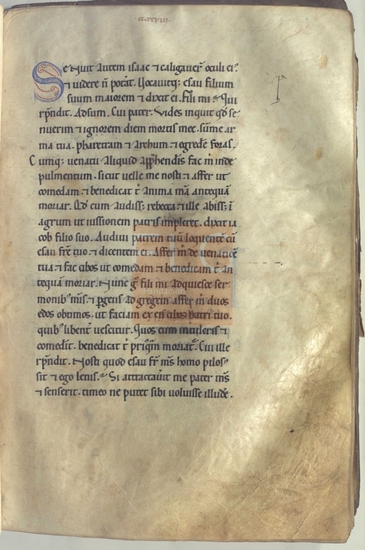 Senuit autem isaac & caligauer̄ oculi ei᷒
& uidere n̄ potāt. Uocauitq; esau filium
suum maiorem & dixit ei. Fili mi. Qui
rn̄dit. Adsum. Cui pater. Vides inquit qd̄ se
nuerim & ignorem diem mortis meę. sume ar
ma tua. pharetram & archum. & egredere foras.
Cumq; uenatu aliquid apphendis fac m̄ inde
pulmentum. sicut uelle me nosti & affer ut
comedam. & benedicat t̄ anima m̄a anteq̄m
moriar. Qd̄ cum audiss& rebecca. & ille abiss& ī
agrum ut iussionem patris impler&. dixit ia
cob filio suo. Audiui patrem tuū loquentē cū
esau fr̄e tuo & dicentem ei. Affer m̄ de uenatiōe
tua & fac cibos ut comedam & benedicam t̄ an
tequā moriar. Nunc g̊ fili mi adquiesce ser
monib; m̄is & pgens ad gregem affer m̄ duos
edos obtimos. ut faciam ex eis cibos patri tuo.
quib; libent̄ uescitur. Quos cum intuleris &
comedit. benedicat t̄ priusq̄m moriat᷒. Cui ille
rn̄dit. Nosti quod esau fr̄ m̄s homo pilos᷒
sit & ego lenis. Si attractauit me pater m̄s
& senserit. timeo ne put& sibi uoluisse illude.